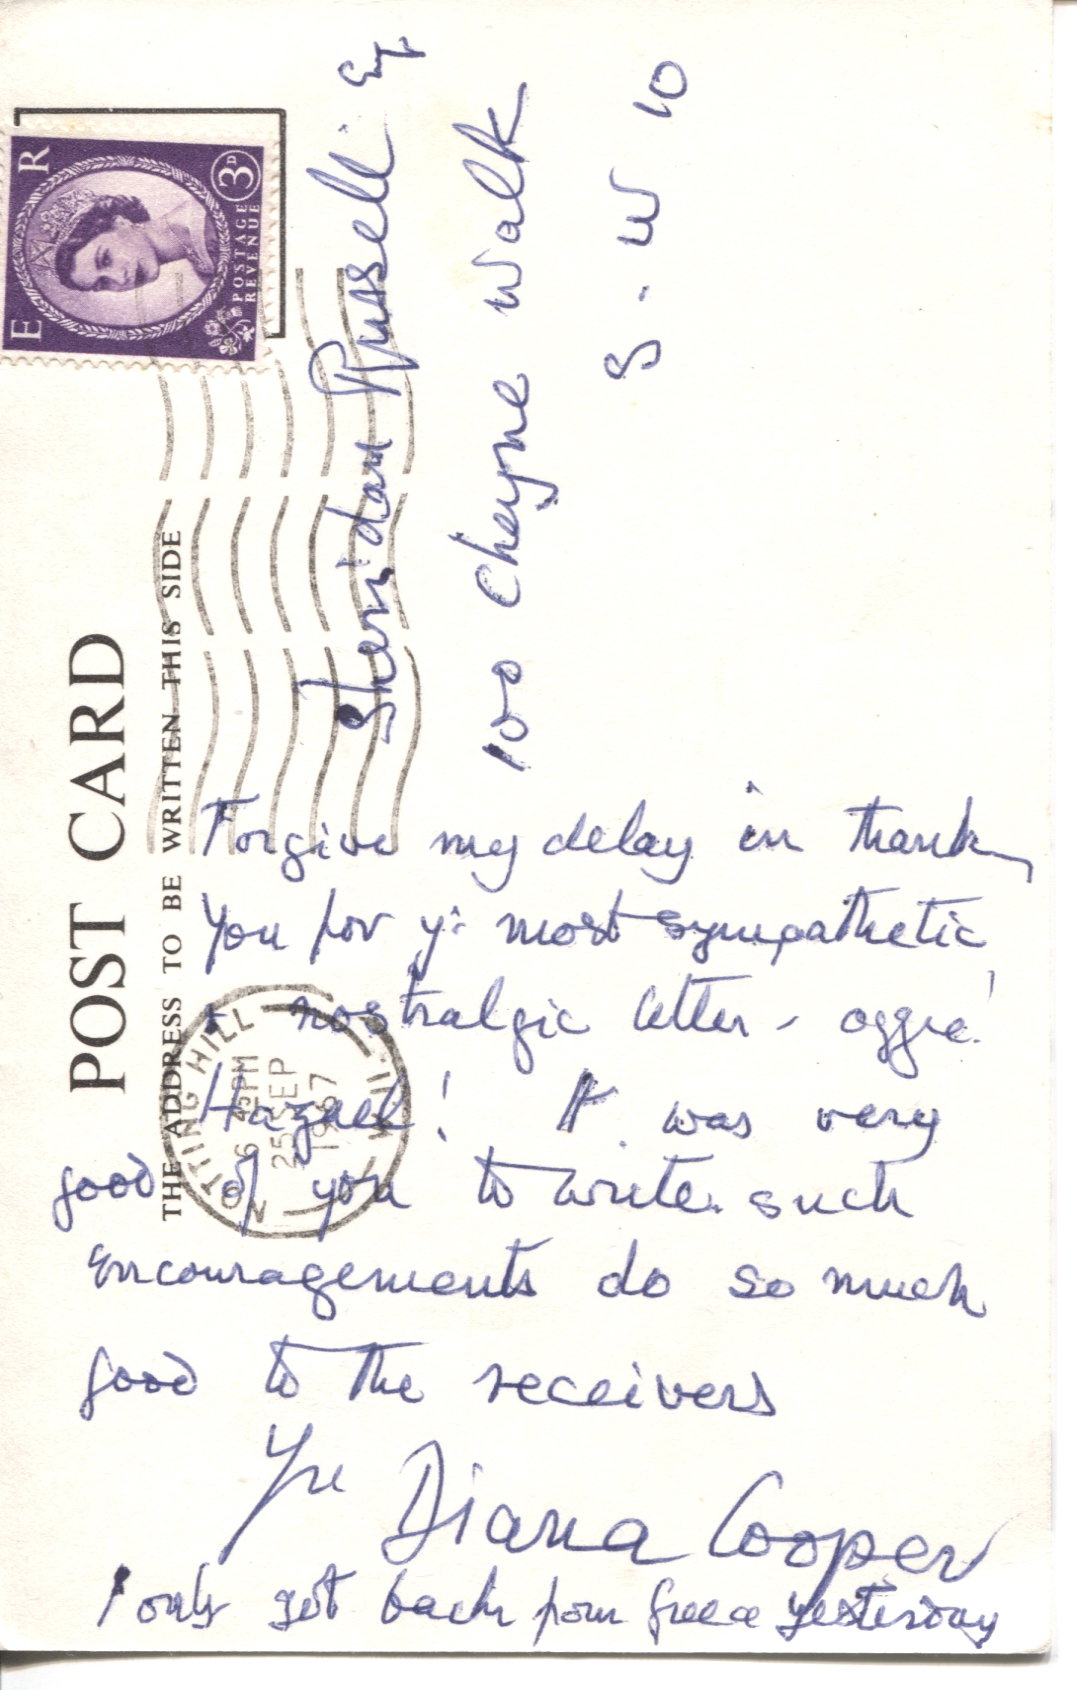 POST CARD
THE ADDRESS TO BE WRITTEN THIS SIDE
E R
3D
POSTAGE
REVENUE
NOTTING HILL
6 45PM
25 SEP
1967
W.11
Sheridan Russell Esq
100 Cheyne Walk
S. W 10
Forgive my delay in thank
you for yr most sympathetic
+ nostralgic letter -
! It was very
good of you to write. such
encouragements do so much
good to the receivers
Yrs Diana Cooper
I only got back from Greece yesterday